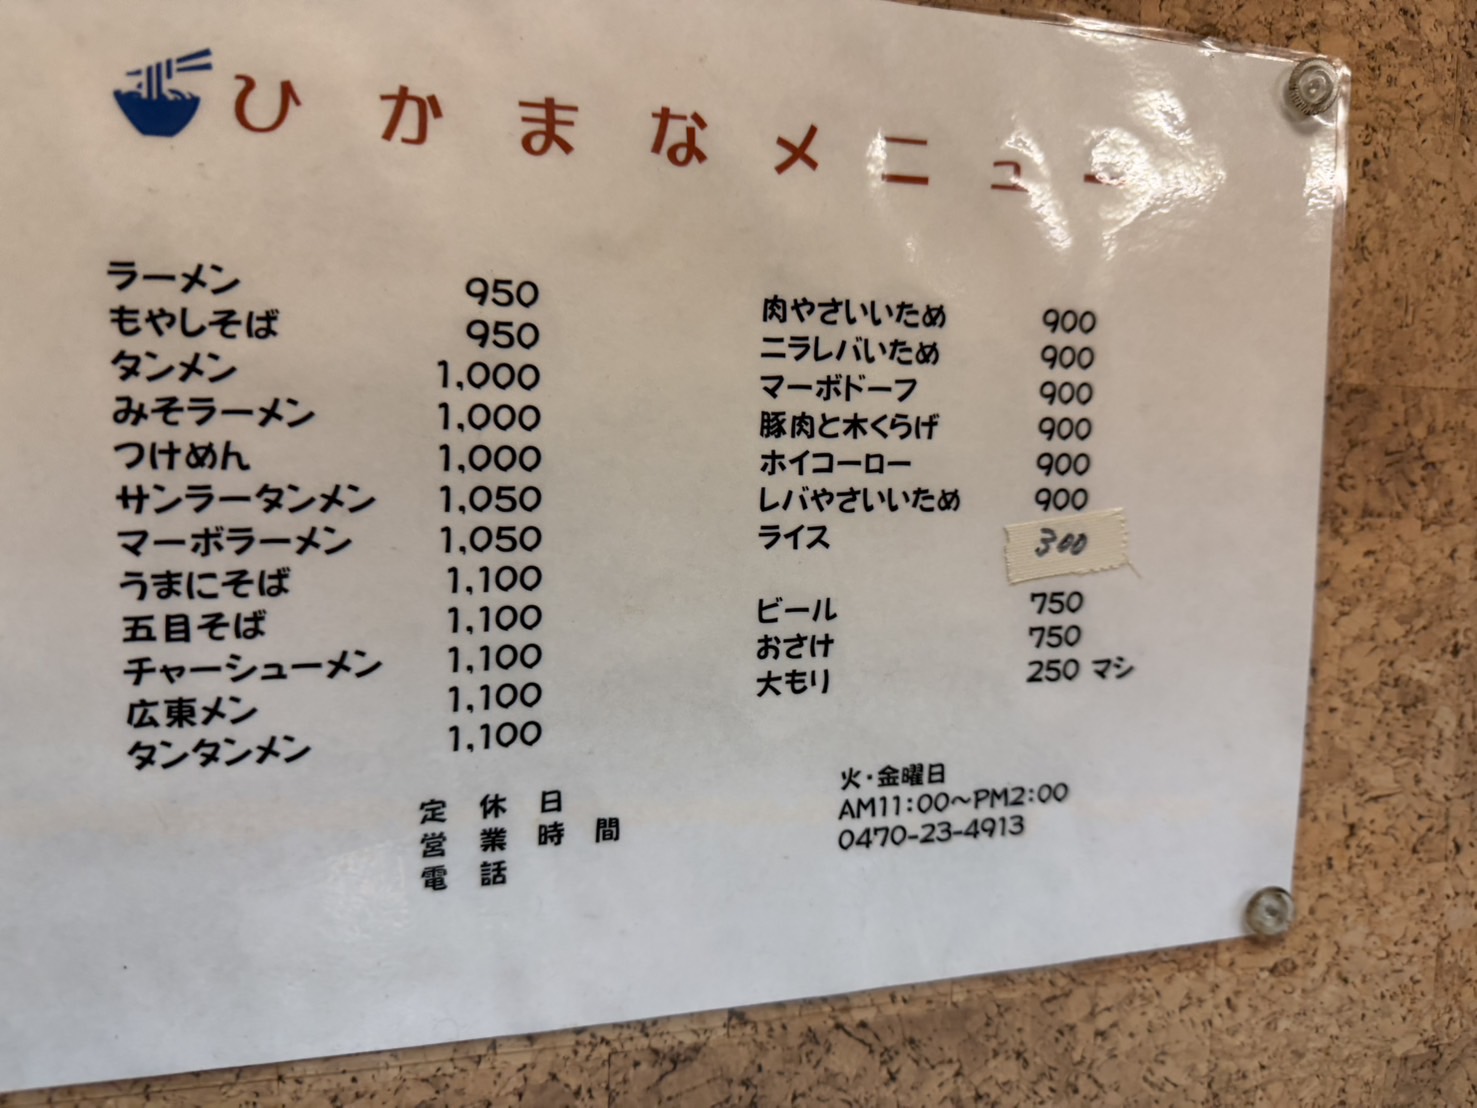 ひかまなメニュー
ラーメン 950
もやしそば 950
タンメン 1,000
みそラーメン 1,000
つけめん 1,000
サンラータンメン 1,050
マーボラーメン 1,050
うまにそば 1,100
五目そば 1,100
チャーシューメン 1,100
広東メン 1,100
タンタンメン 1,100
肉やさいいため 900
ニラレバいため 900
マーボドーフ 900
豚肉と木くらげ 900
ホイコーロー 900
レバやさいいため 900
ライス 300
ビール 750
おさけ 750
大もり 250 マシ
定休日 火・金曜日
営業時間 AM11:00〜PM2:00
電話 0470-23-4913